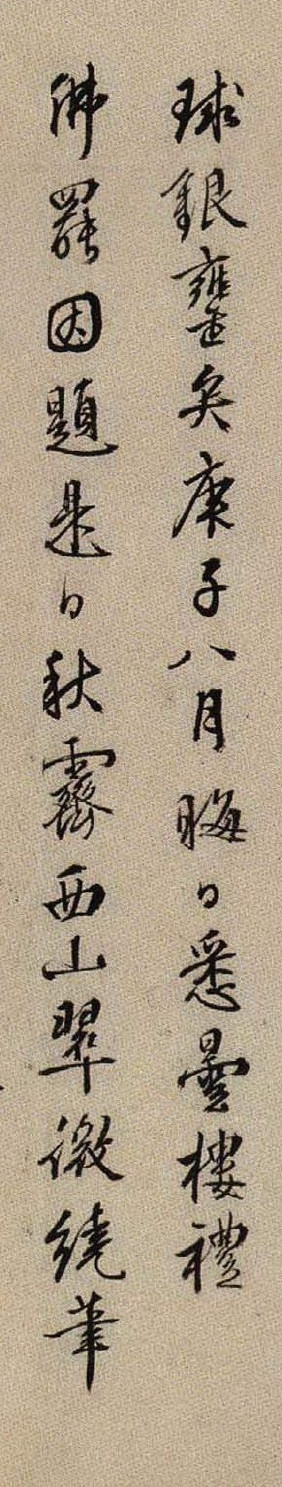 球銀甕矣庚子八月晦日悉曇樓禮
佛罷因題是日秋霽西山翠微繞筆